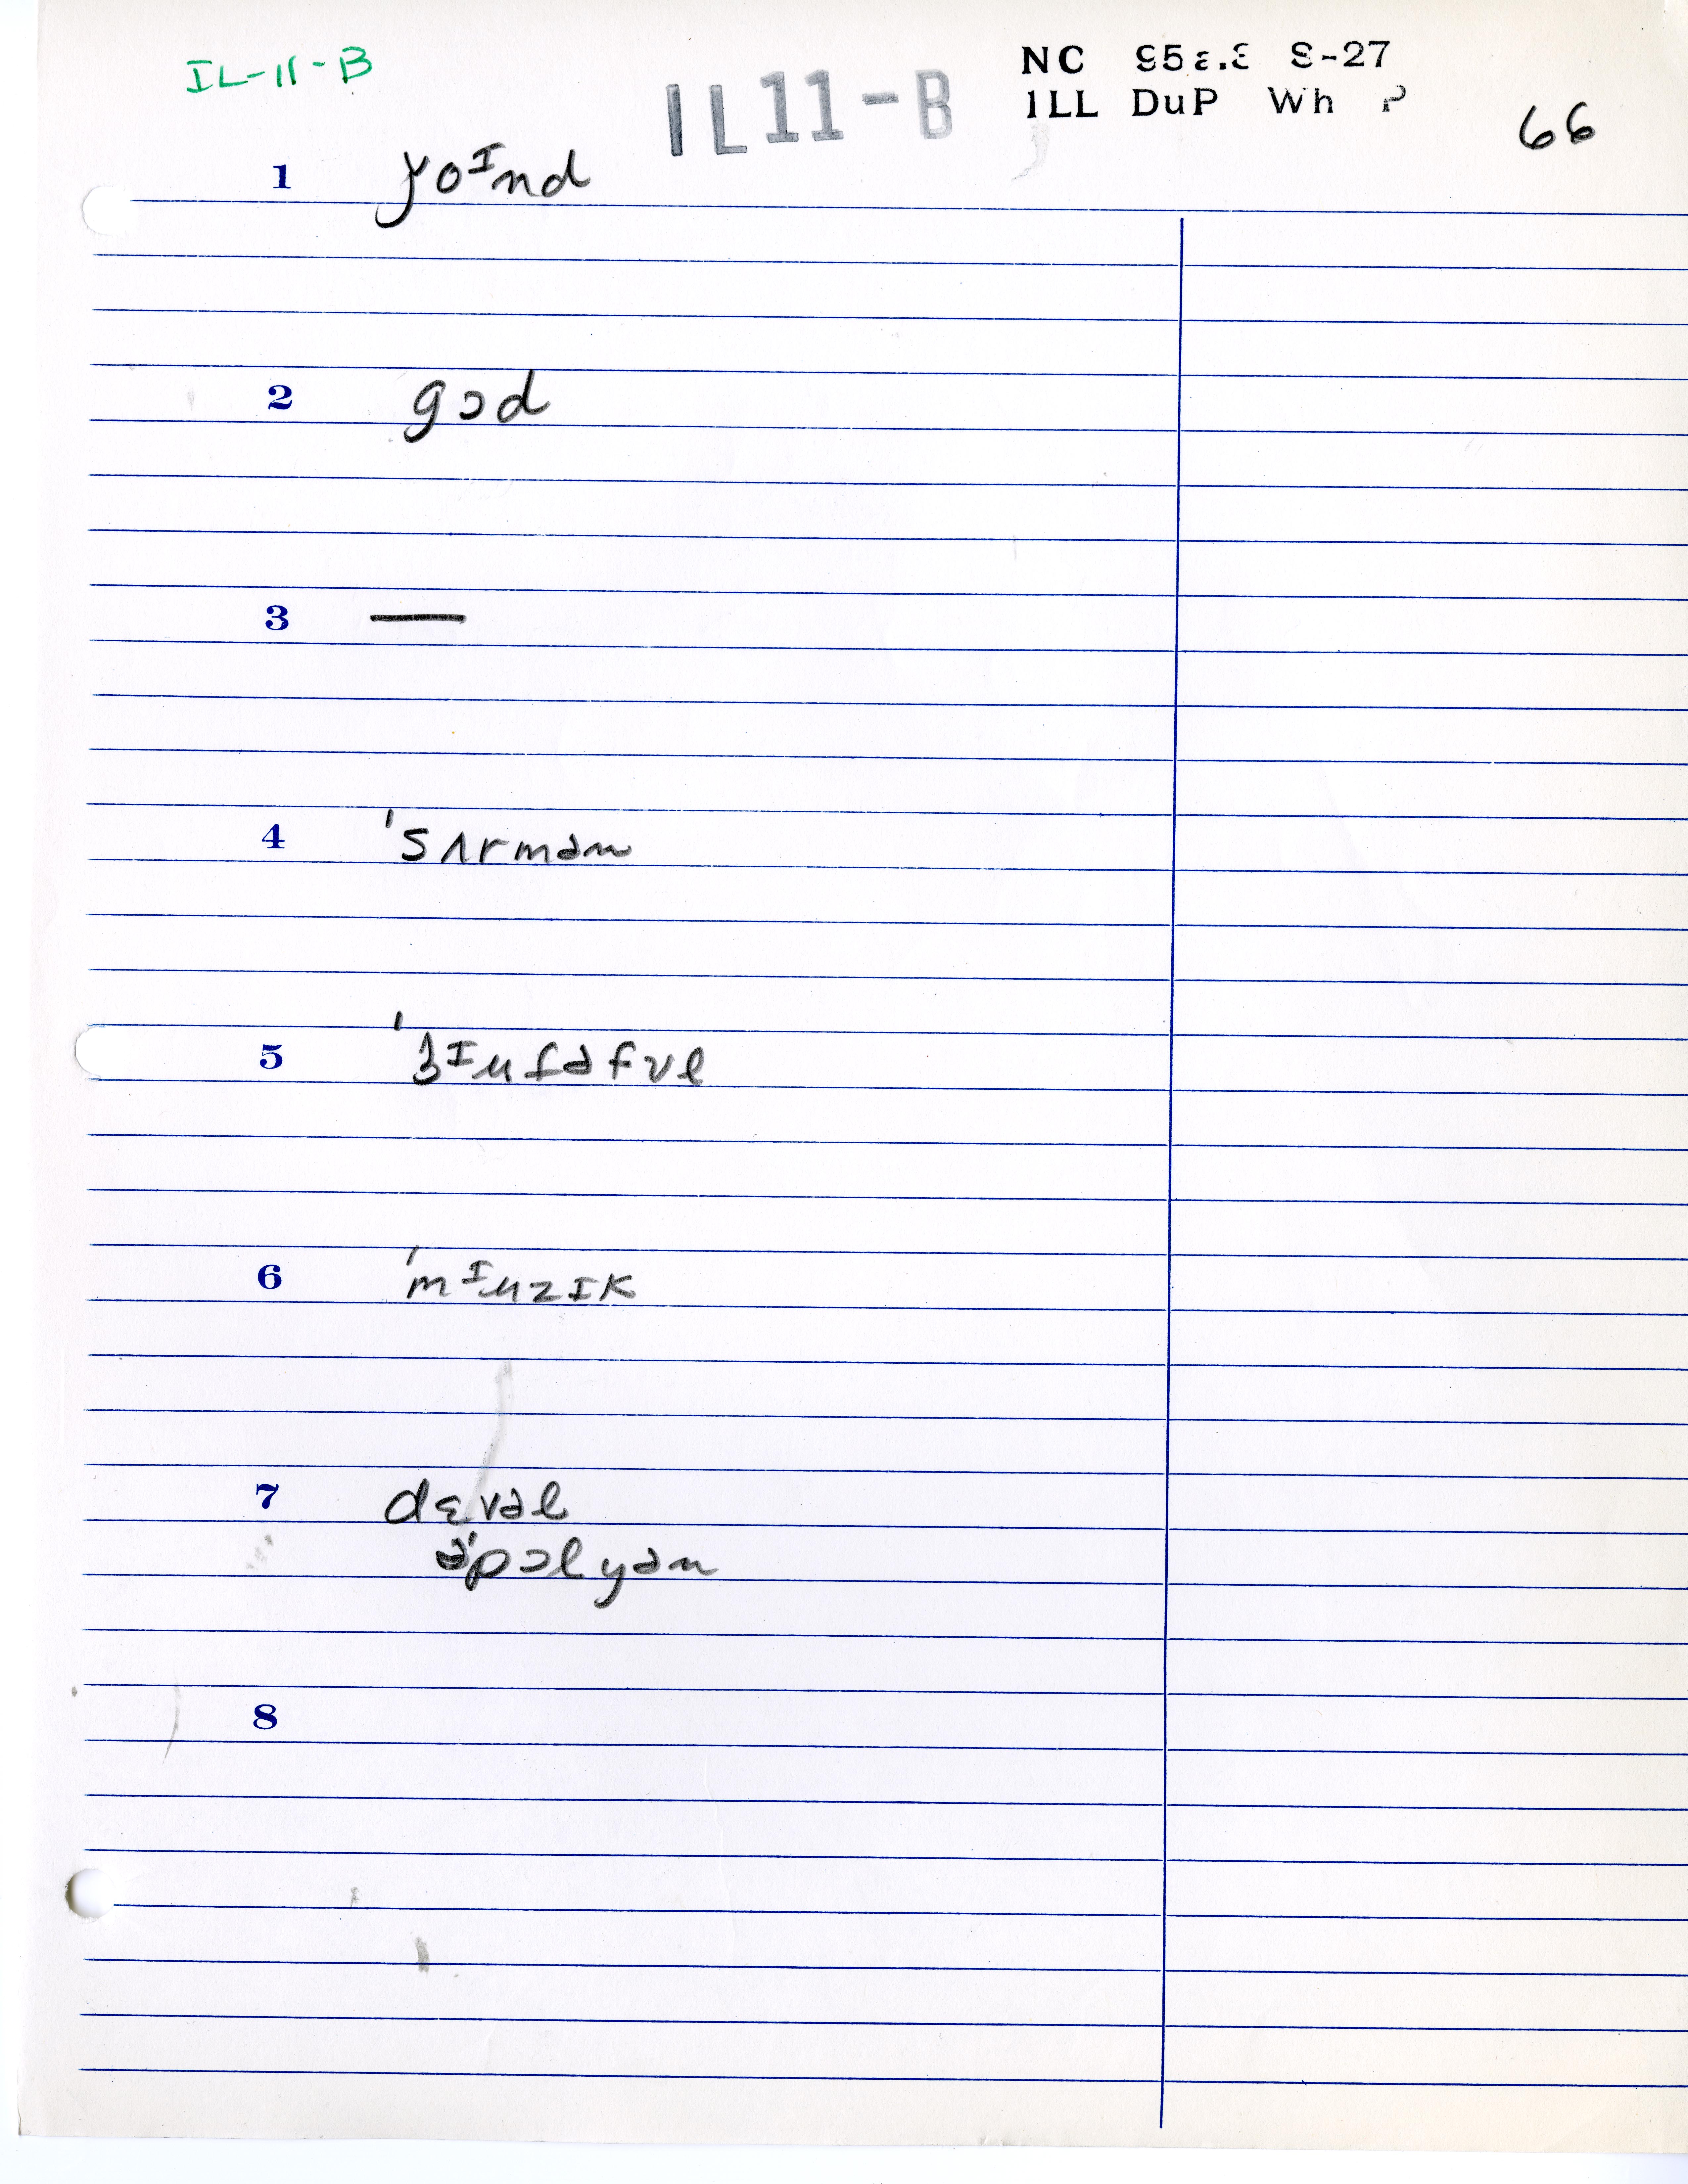 IL-11-B
IL11-B
NC 95ɛ.Ɛ S-27
ILL DuP Wh
66
1 ǰoᴵnd
2 gɔd
3 —
4 'sʌrmən
5 
6 'mᴵuzɪk
7 dɛvəl
ə'pɔlyən
8